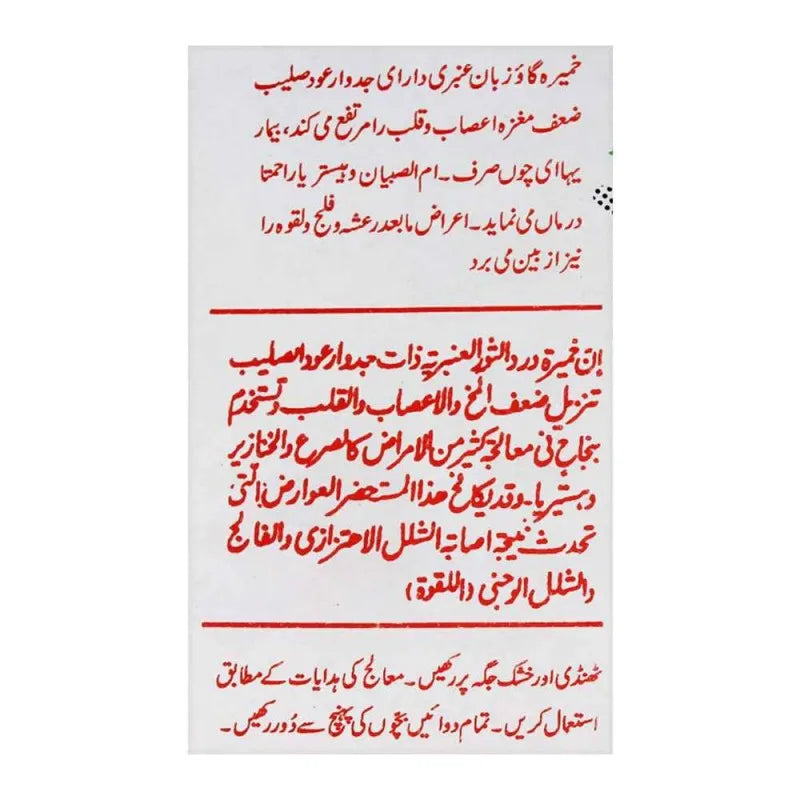 خمیرہ گاؤزبان عنبری دارای جدوار عود صلیب
ضعف مغزہ اعصاب و قلب را مرتفع می کند، بیمار
یہاای چوں صرف۔ ام الصبیان و ہیستر یاراحمتا
درماں می نماید۔ اعراض مابعد رعشہ و فلج ولقوہ را
نیز از بین می برد
إن خميرة ورد الثور العنبرية ذات جدوار عود الصليب
تنزيل ضعف المخ والاعصاب والقلب وتستخدم
بنجاح في معالجة كثير من الامراض كالصرع والخنازير
وهستيريا۔ وقد يكالج هذا المستحضر العوارض التي
تحدث نتيجة اصابة الشلل الاهتزازي والفالج
والشلل الوجني (اللقوة)
ٹھنڈی اور خشک جگہ پر رکھیں۔ معالج کی ہدایات کے مطابق
استعمال کریں۔ تمام دوائیں بچّوں کی پہنچ سے دُور رکھیں۔